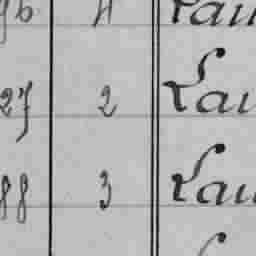 96 4 Lau
27 2 Lau
88 3 Lau